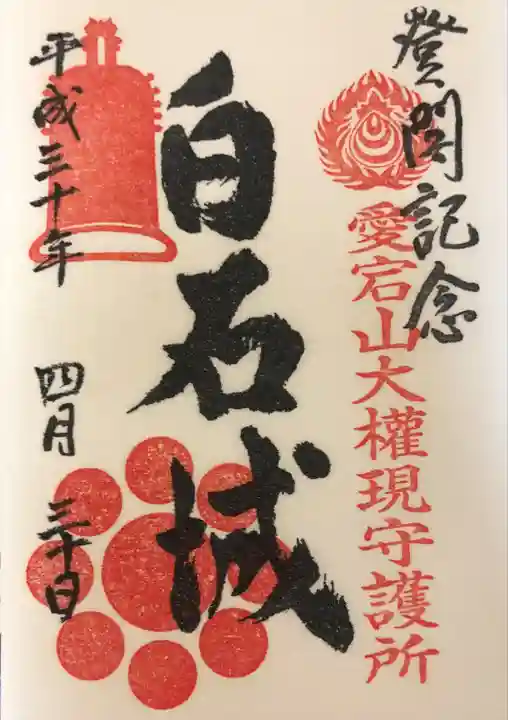 登閣記念
愛宕山大權現守護所
白石城
平成三十年
四月
三十日